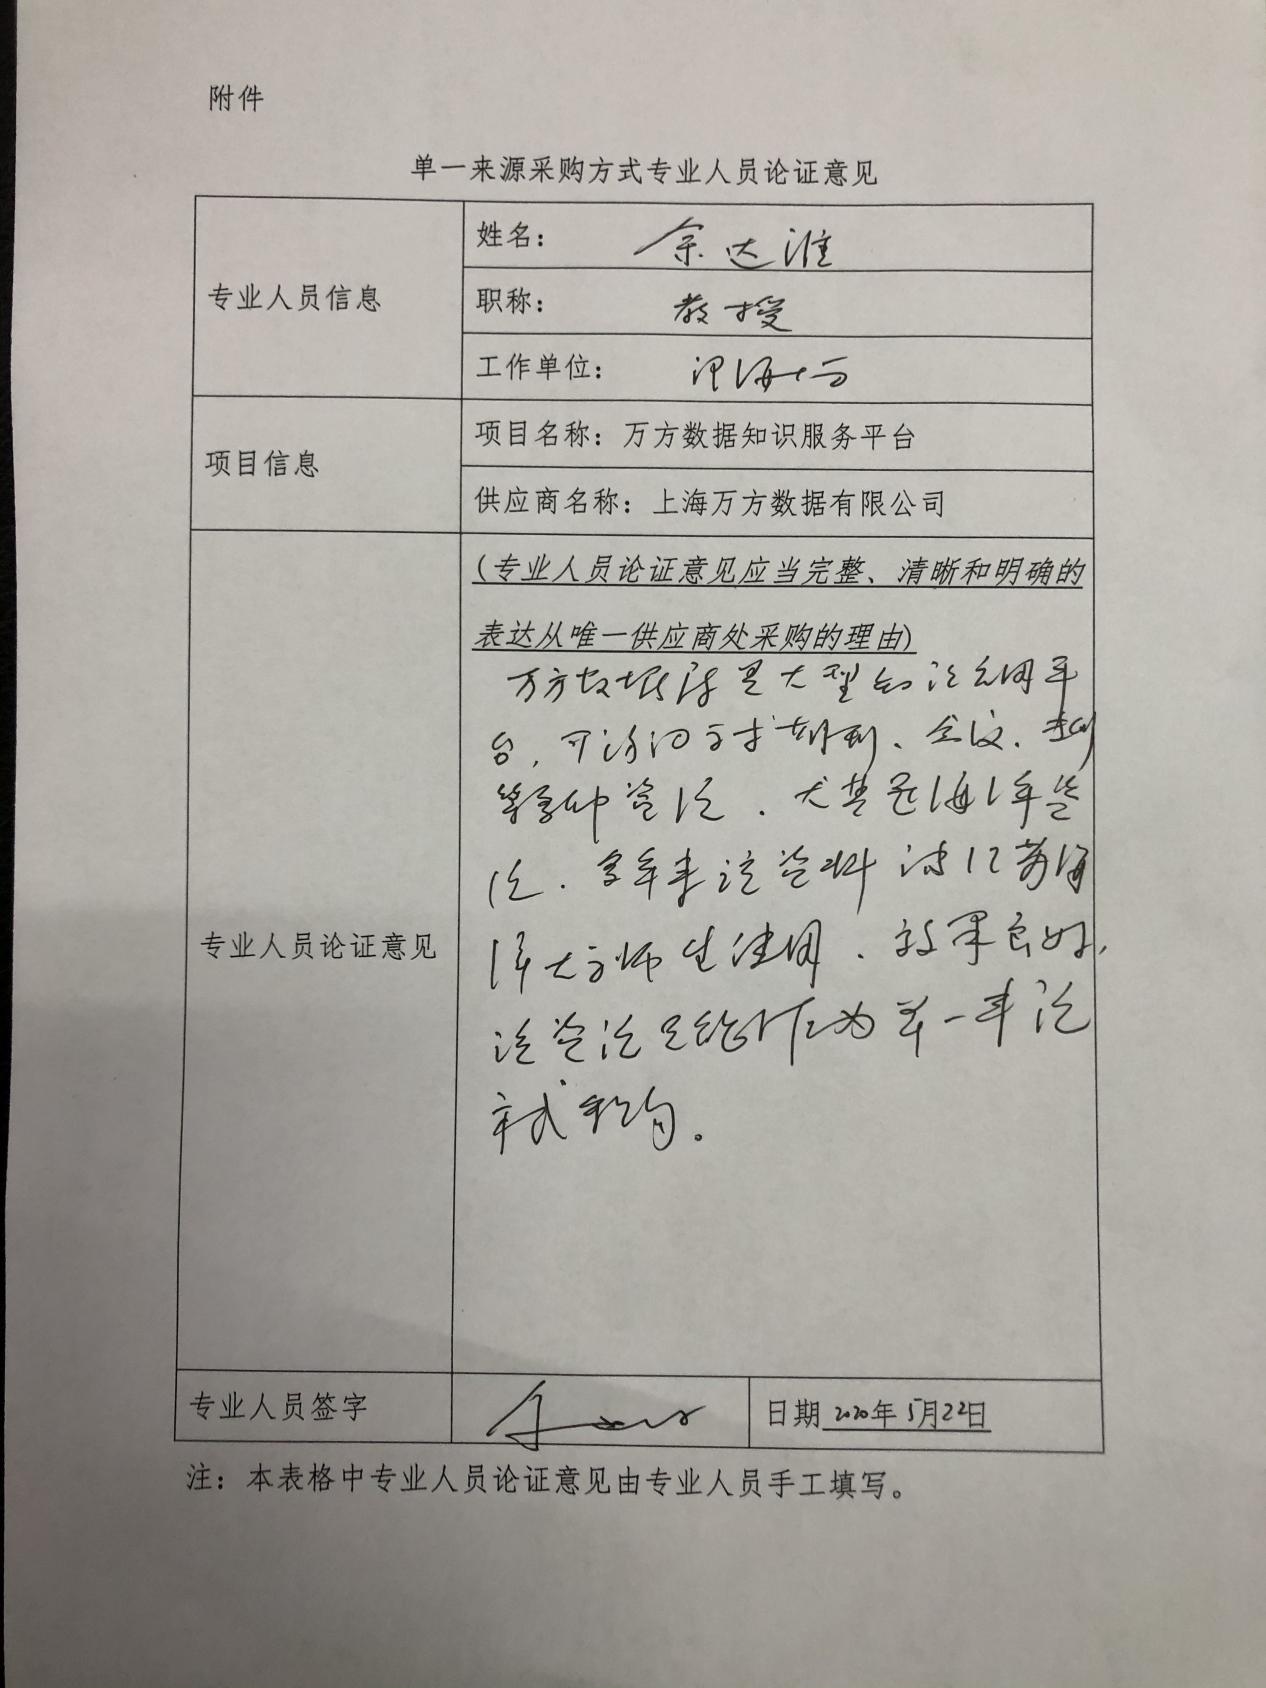 附件
单一来源采购方式专业人员论证意见
专业人员信息
姓名： 余达淮
职称： 教授
工作单位： 河海大学
项目信息
项目名称：万方数据知识服务平台
供应商名称：上海万方数据有限公司
专业人员论证意见
(专业人员论证意见应当完整、清晰和明确的
表达从唯一供应商处采购的理由)
万方数据库是大型的 网平
台，可访问 期刊、会议、
等 资源．尤其是
源．多年来该资料
大学师生使用．效果良好，
该资源只能作为单一来源
方式采购。
专业人员签字
日期 2020年5月22日
注：本表格中专业人员论证意见由专业人员手工填写。